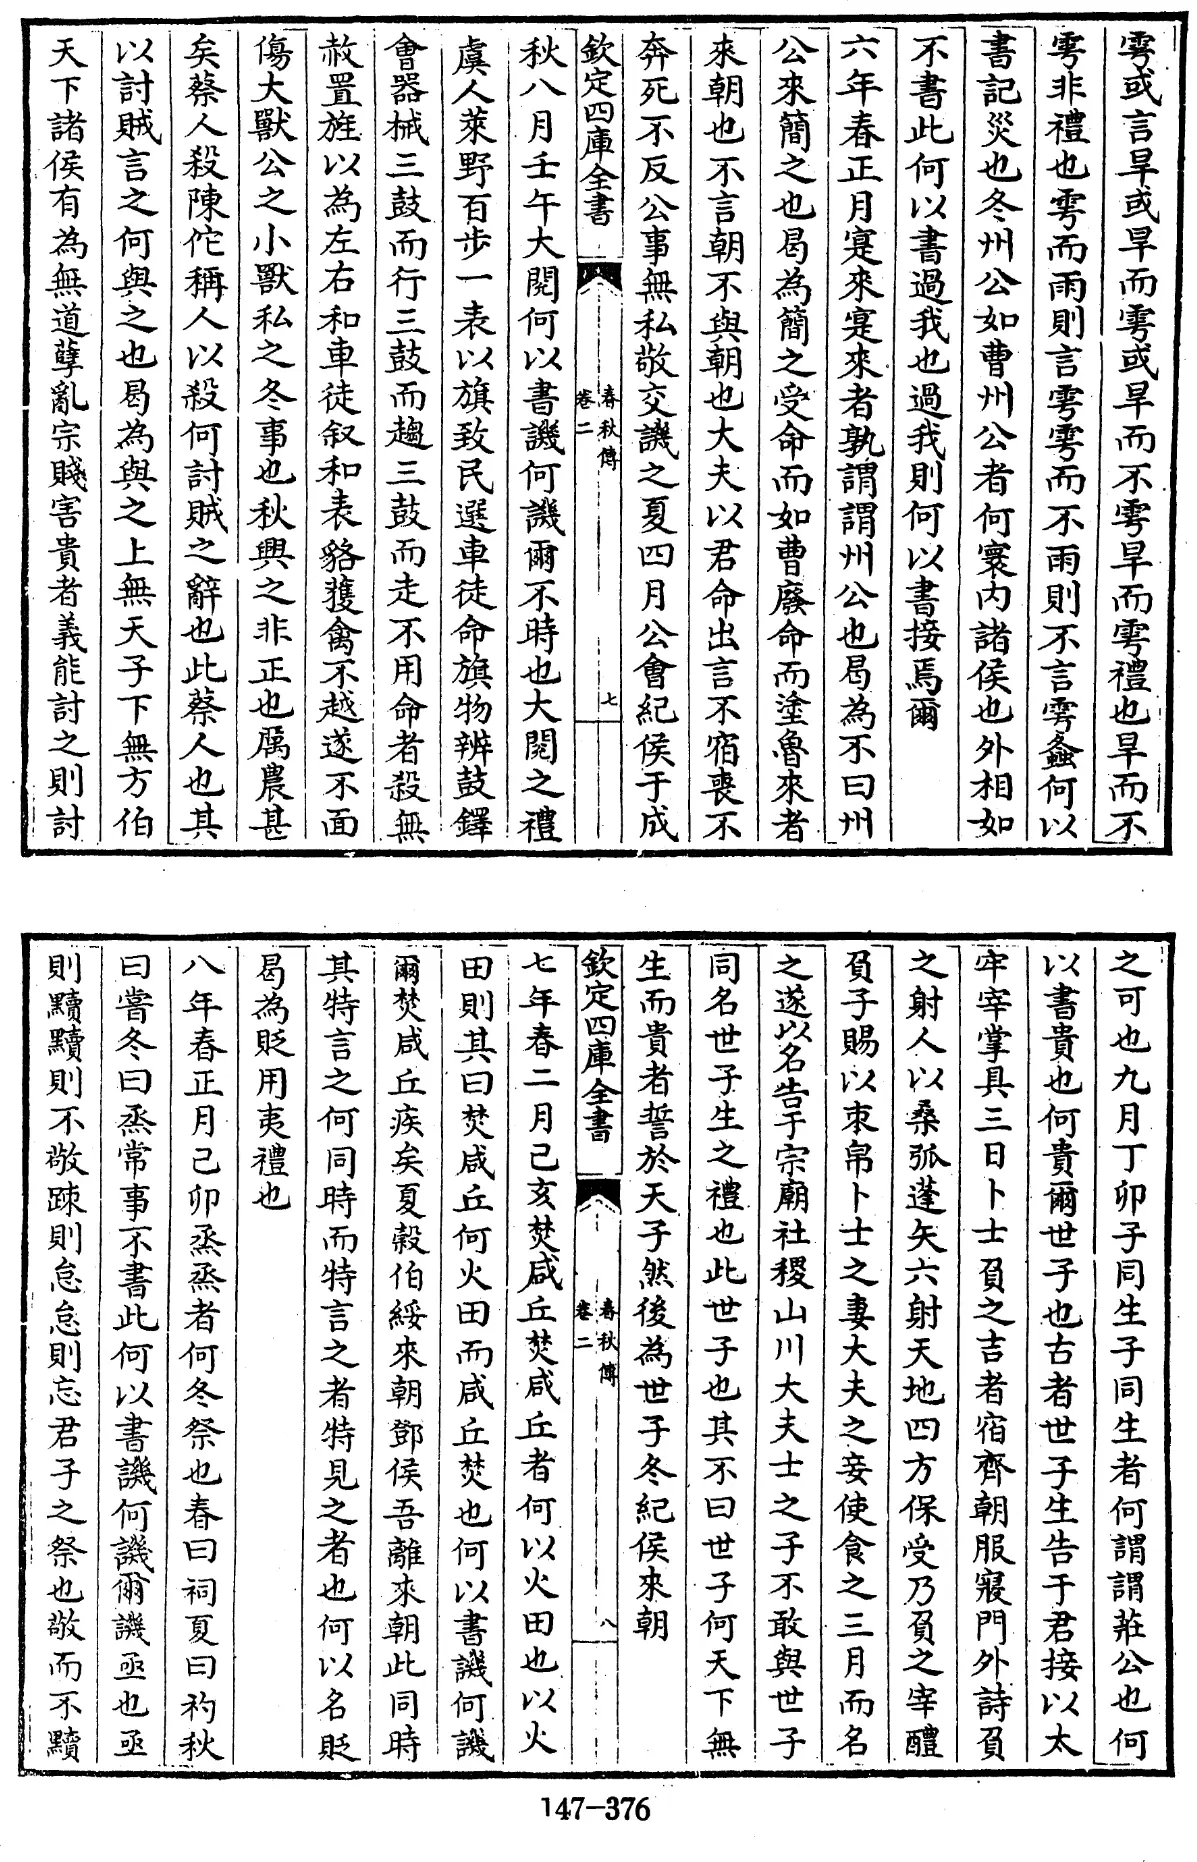 雩或言旱或旱而雩或旱而不雩旱而雩禮也旱而不
雩非禮也雩而雨則言雩雩而不雨則不言雩螽何以
書記災也冬州公如曹州公者何寰内諸侯也外相如
不書此何以書過我也過我則何以書接焉爾
六年春正月寔來寔來者孰謂謂州公也曷為不曰州
公來簡之也曷為簡之受命而如曹廢命而塗魯來者
來朝也不言朝不與朝也大夫以君命出言不宿喪不
奔死不反公事無私敬交譏之夏四月公會紀侯于成
欽定四庫全書
春秋傳
卷二
七
秋八月壬午大閱何以書譏何譏爾不時也大閱之禮
虞人萊野百步一表以旗致民選車徒命旗物辨鼓鐸
會器械三鼓而行三鼓而趨三鼓而走不用命者殺無
赦置旌以為左右和車徒叙和表貉獲禽不越遂不面
傷大獸公之小獸私之冬事也秋興之非正也厲農甚
矣蔡人殺陳佗稱人以殺何討賊之辭也此蔡人也其
以討賊言之何與之也曷為與之上無天子下無方伯
天下諸侯有為無道孽亂宗賤害貴者義能討之則討
之可也九月丁卯子同生子同生者何謂謂莊公也何
以書貴也何貴爾世子也古者世子生告于君接以太
牢宰掌具三日卜士負之吉者宿齊朝服寢門外詩負
之射人以桑弧蓬矢六射天地四方保受乃負之宰醴
負子賜以束帛卜士之妻大夫之妾使食之三月而名
之遂以名告于宗廟社稷山川大夫士之子不敢與世子
同名世子生之禮也此世子也其不曰世子何天下無
生而貴者誓於天子然後為世子冬紀侯來朝
欽定四庫全書
春秋傳
卷二
八
七年春二月己亥焚咸丘焚咸丘者何以火田也以火
田則其曰焚咸丘何火田而咸丘焚也何以書譏何譏
爾焚咸丘疾矣夏穀伯綏來朝鄧侯吾離來朝此同時
其特言之何同時而特言之者特見之者也何以名貶
曷為貶用夷禮也
八年春正月己卯烝烝者何冬祭也春曰祠夏曰礿秋
曰嘗冬曰烝常事不書此何以書譏何譏爾譏亟也亟
則黷黷則不敬疎則怠怠則忘君子之祭也敬而不黷
147-376